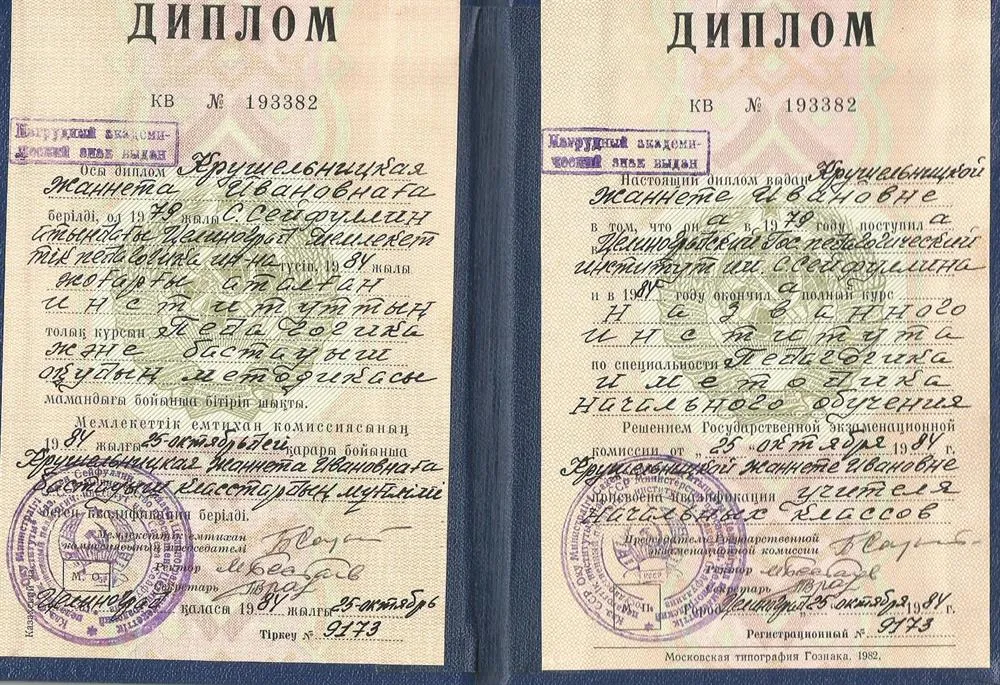 ДИПЛОМ
КВ № 193382
Нагрудный академи-
ческий знак выдан
Осы диплом Крушельницкая
Жаннета Ивановнаға
берілді, ол 1979 жылы С.Сейфуллин
атындағы Целиноград мемлекет
тік педагогика ин-на түсіп, 1984 жылы
жоғарғы аталған
институттың
толық курсын Педагогика
және бастауыш
оқудың методикасы
мамандығы бойынша бітіріп шықты.
Мемлекеттік емтихан комиссиясының
1984 жылғы 25-октябрьдей қарары бойынша
Крушельницкая Жаннета Ивановнаға
бастауыш класстардың мұғалімі
деген квалификация берілді.
Мемлекеттік емтихан
комиссиясының председателі
Ректор
Секретарь
М. О.
Целиноград қаласы 1984 жылғы 25-октябрь
Тіркеу № 9173
ДИПЛОМ
КВ № 193382
Нагрудный академи-
ческий знак выдан
Настоящий диплом выдан Крушельницкой
Жаннете Ивановне
в том, что он а в 1979 году поступил а
в Целиноградский гос. педагогический
институт им. С.Сейфуллина
и в 1984 году окончил а полный курс
названного
института
по специальности Педагогика
и методика
начального обучения
Решением Государственной экзаменационной
комиссии от „25“ октября 1984 г.
Крушельницкой Жаннете Ивановне
присвоена квалификация учителя
начальных классов
Председатель Государственной
экзаменационной комиссии
Ректор
Секретарь
М. П.
Город Целиноград „25“ октября 1984 г.
Регистрационный № 9173
Московская типография Гознака. 1982.